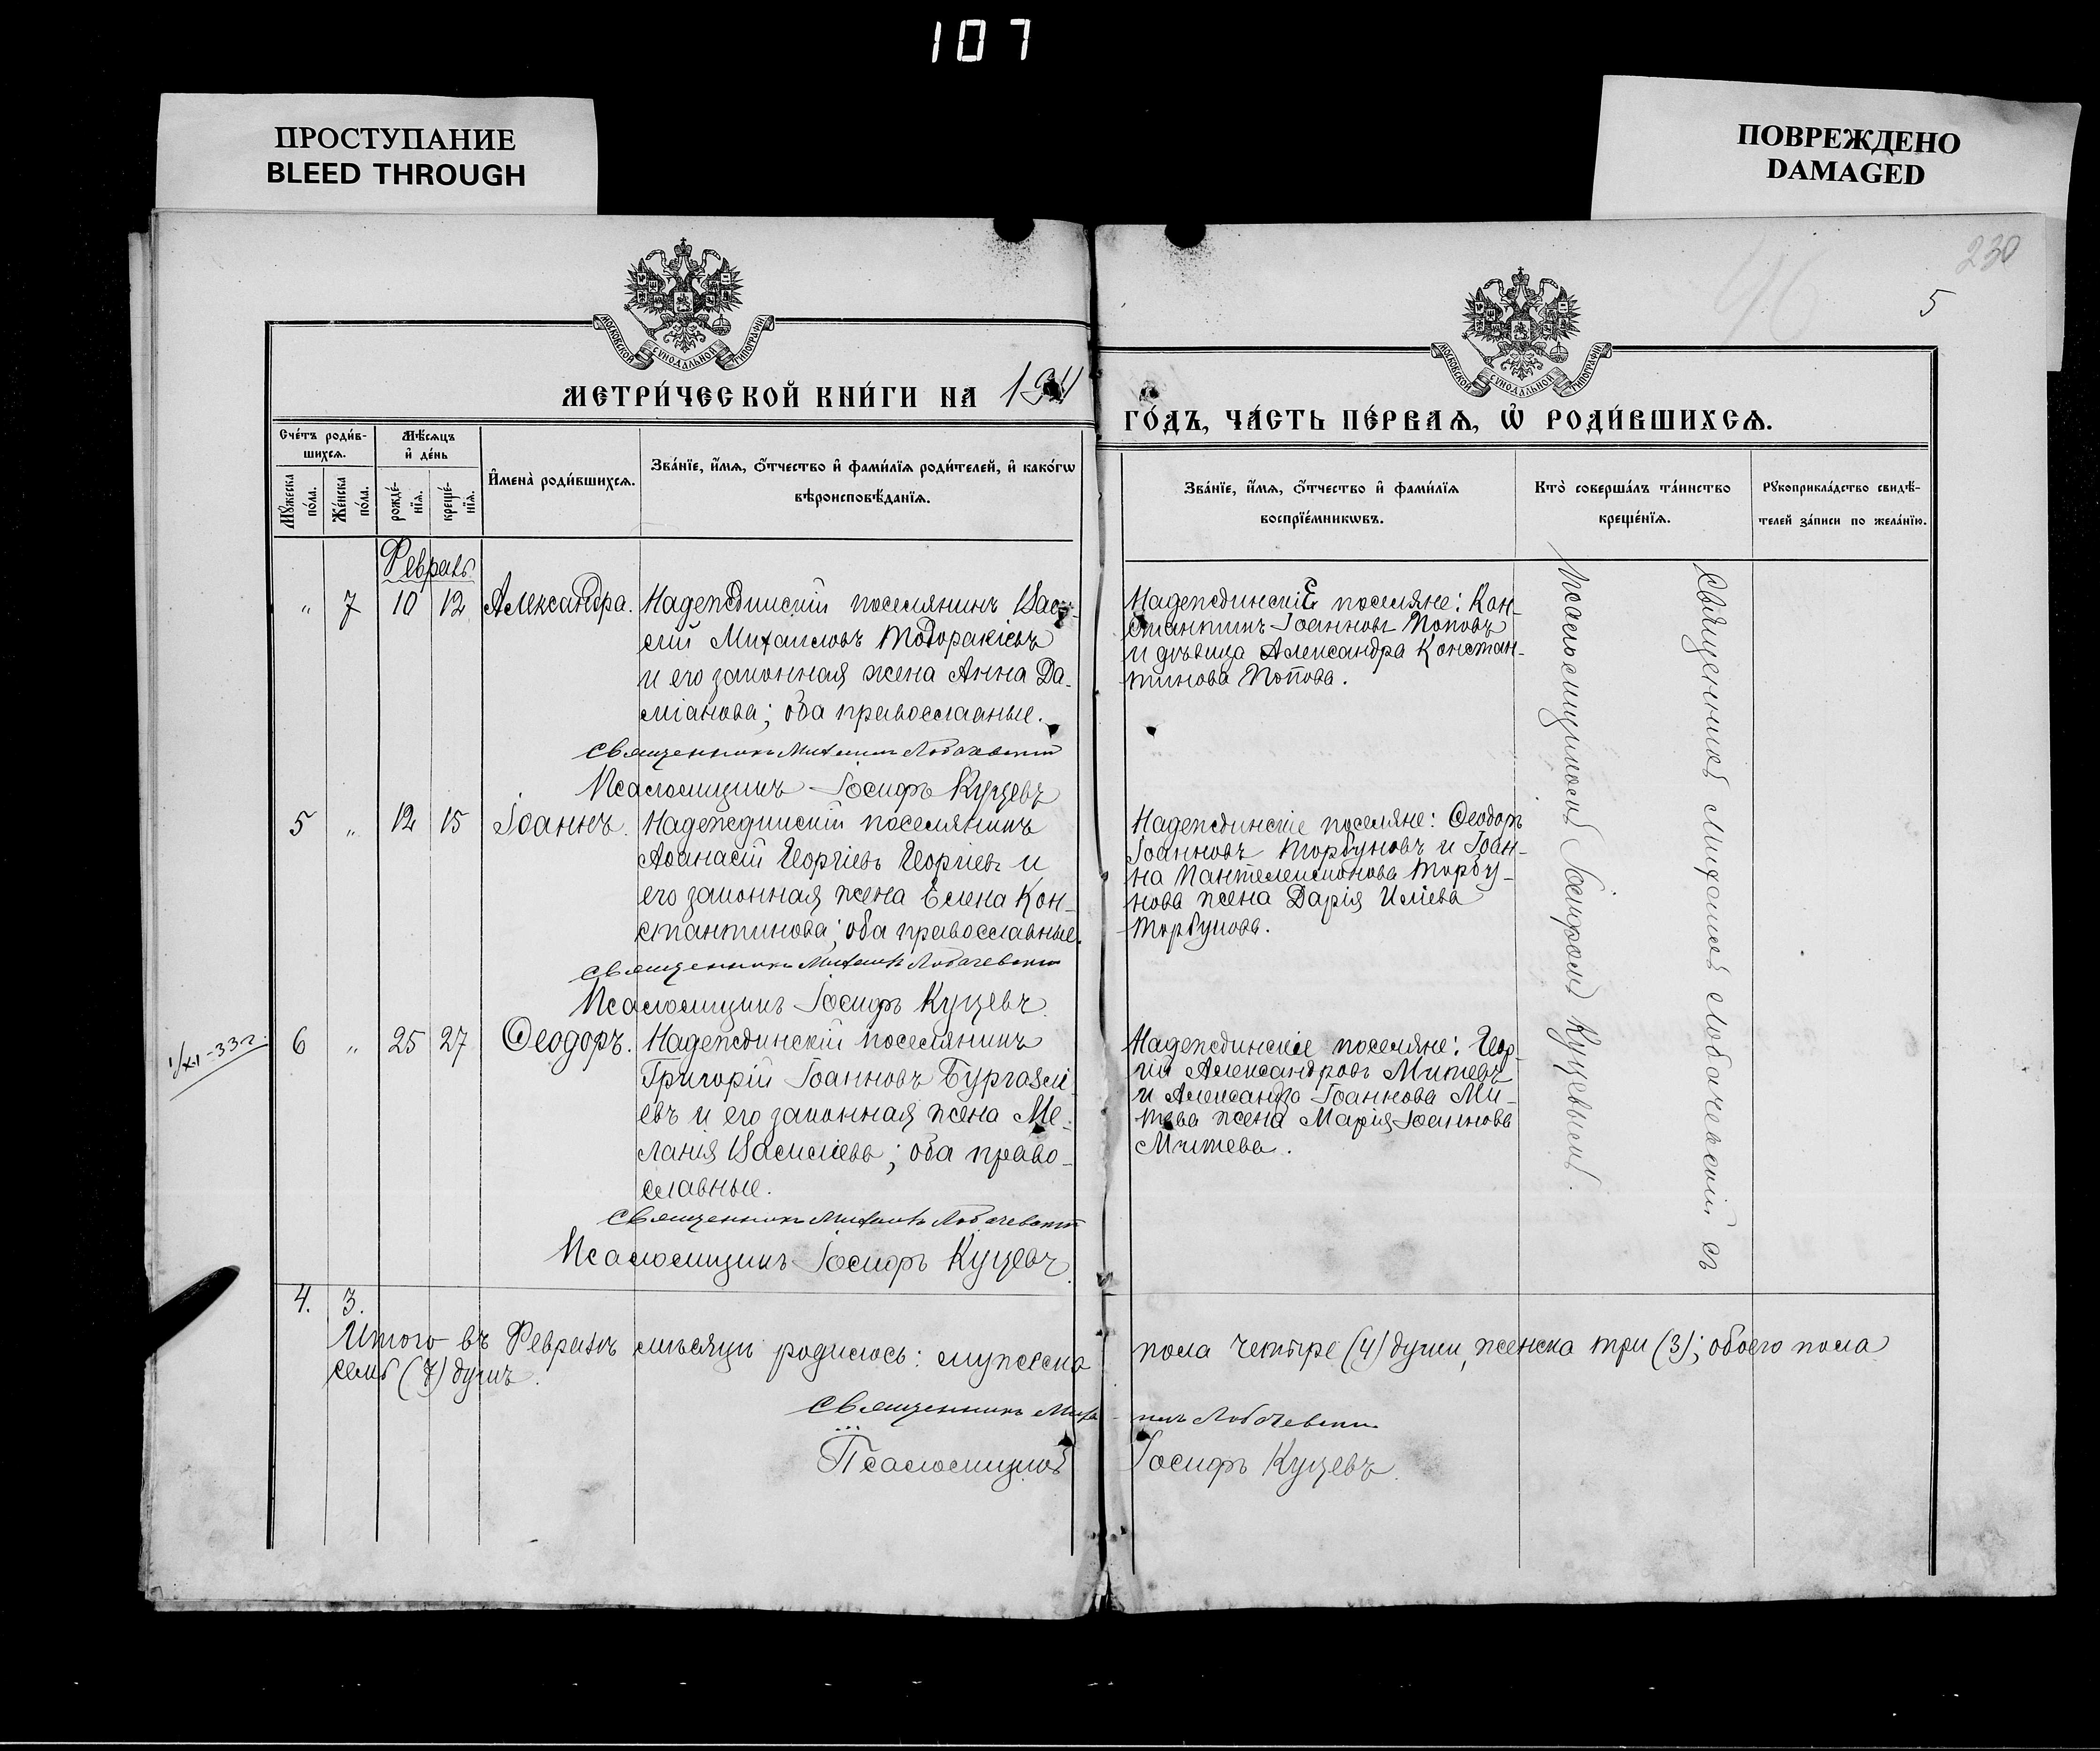 107
ПРОСТУПАНИЕ
BLEED THROUGH
ПОВРЕЖДЕНО
DAMAGED
230
5
МОСКОВСКОЙ СѴНОДАЛЬНОЙ ТИПОГРАФІИ
МОСКОВСКОЙ СѴНОДАЛЬНОЙ ТИПОГРАФІИ
МЕТРИ́ЧЕСКОЙ КНИ́ГИ НА
ГО́ДЪ, ЧА́СТЬ ПЕ́РВАѦ, Ѡ҆ РОДИ́ВШИХСѦ.
Сче́тъ роди́в-
шихсѧ.
Мѣ́сѧцъ
и҆ де́нь
Мꙋ́жеска по́ла.
Же́нска по́ла.
рожде́-
нїѧ.
креще́-
нїѧ.
И҆мена̀ роди́вшихсѧ.
Зва́нїе, и҆́мѧ, ѻ҆́тчество и҆ фами́лїѧ роди́телей, и҆ како́гѡ
вѣроисповѣ́данїѧ.
Зва́нїе, и҆́мѧ, ѻ҆́тчество и҆ фами́лїѧ
воспрїе́мникѡвъ.
Кто̀ соверша́лъ та́инство
креще́нїѧ.
Рꙋкоприкла́дство свидѣ́-
телей за́писи по жела́нїю.
Февраль
„ 7 10 12 Александра. Надеждинскій поселянинъ Васи-
лій Михаиловъ Тодоракіевъ
и его законная жена Анна Да-
міанова; оба православные.
Священникъ Михаилъ Лобачевскій
Псаломщикъ Іосифъ Куцевъ
Надеждинскіе поселяне: Кон-
стантинъ Іоанновъ Поповъ
и дѣвица Александра Констан-
тинова Попова.
5 „ 12 15 Іоаннъ. Надеждинскій поселянинъ
Аѳанасій Георгіевъ Георгіевъ и
его законная жена Елена Кон-
стантинова; оба православные.
Священникъ Михаилъ Лобачевскій
Псаломщикъ Іосифъ Куцевъ.
Надеждинскіе поселяне: Ѳеодоръ
Іоанновъ Торбуновъ и Іоан-
на Пантелеимонова Торбу-
нова жена Дарія Иліева
Торбунова.
1/XI-33 г.
6 „ 25 27 Ѳеодоръ. Надеждинскій поселянинъ
Григорій Іоанновъ Бургазлі-
евъ и его законная жена Ме-
ланія Василіева; оба право-
славные.
Священникъ Михаилъ Лобачевскій
Псаломщикъ Іосифъ Куцевъ.
Надеждинскіе поселяне: Геор-
гій Александровъ Митевъ
и Александра Іоаннова Ми-
тева жена Марія Іоаннова
Митева.
Священникъ Михаилъ Лобачевскій съ
Псаломщикомъ Іосифомъ Куцевымъ.
4. 3.
Итого въ Февралѣ мѣсяцѣ родилось: мужеска пола четыре (4) души, женска три (3); обоего пола
семь (7) душъ.
Священникъ Михаилъ Лобачевскій
Псаломщикъ Іосифъ Куцевъ.